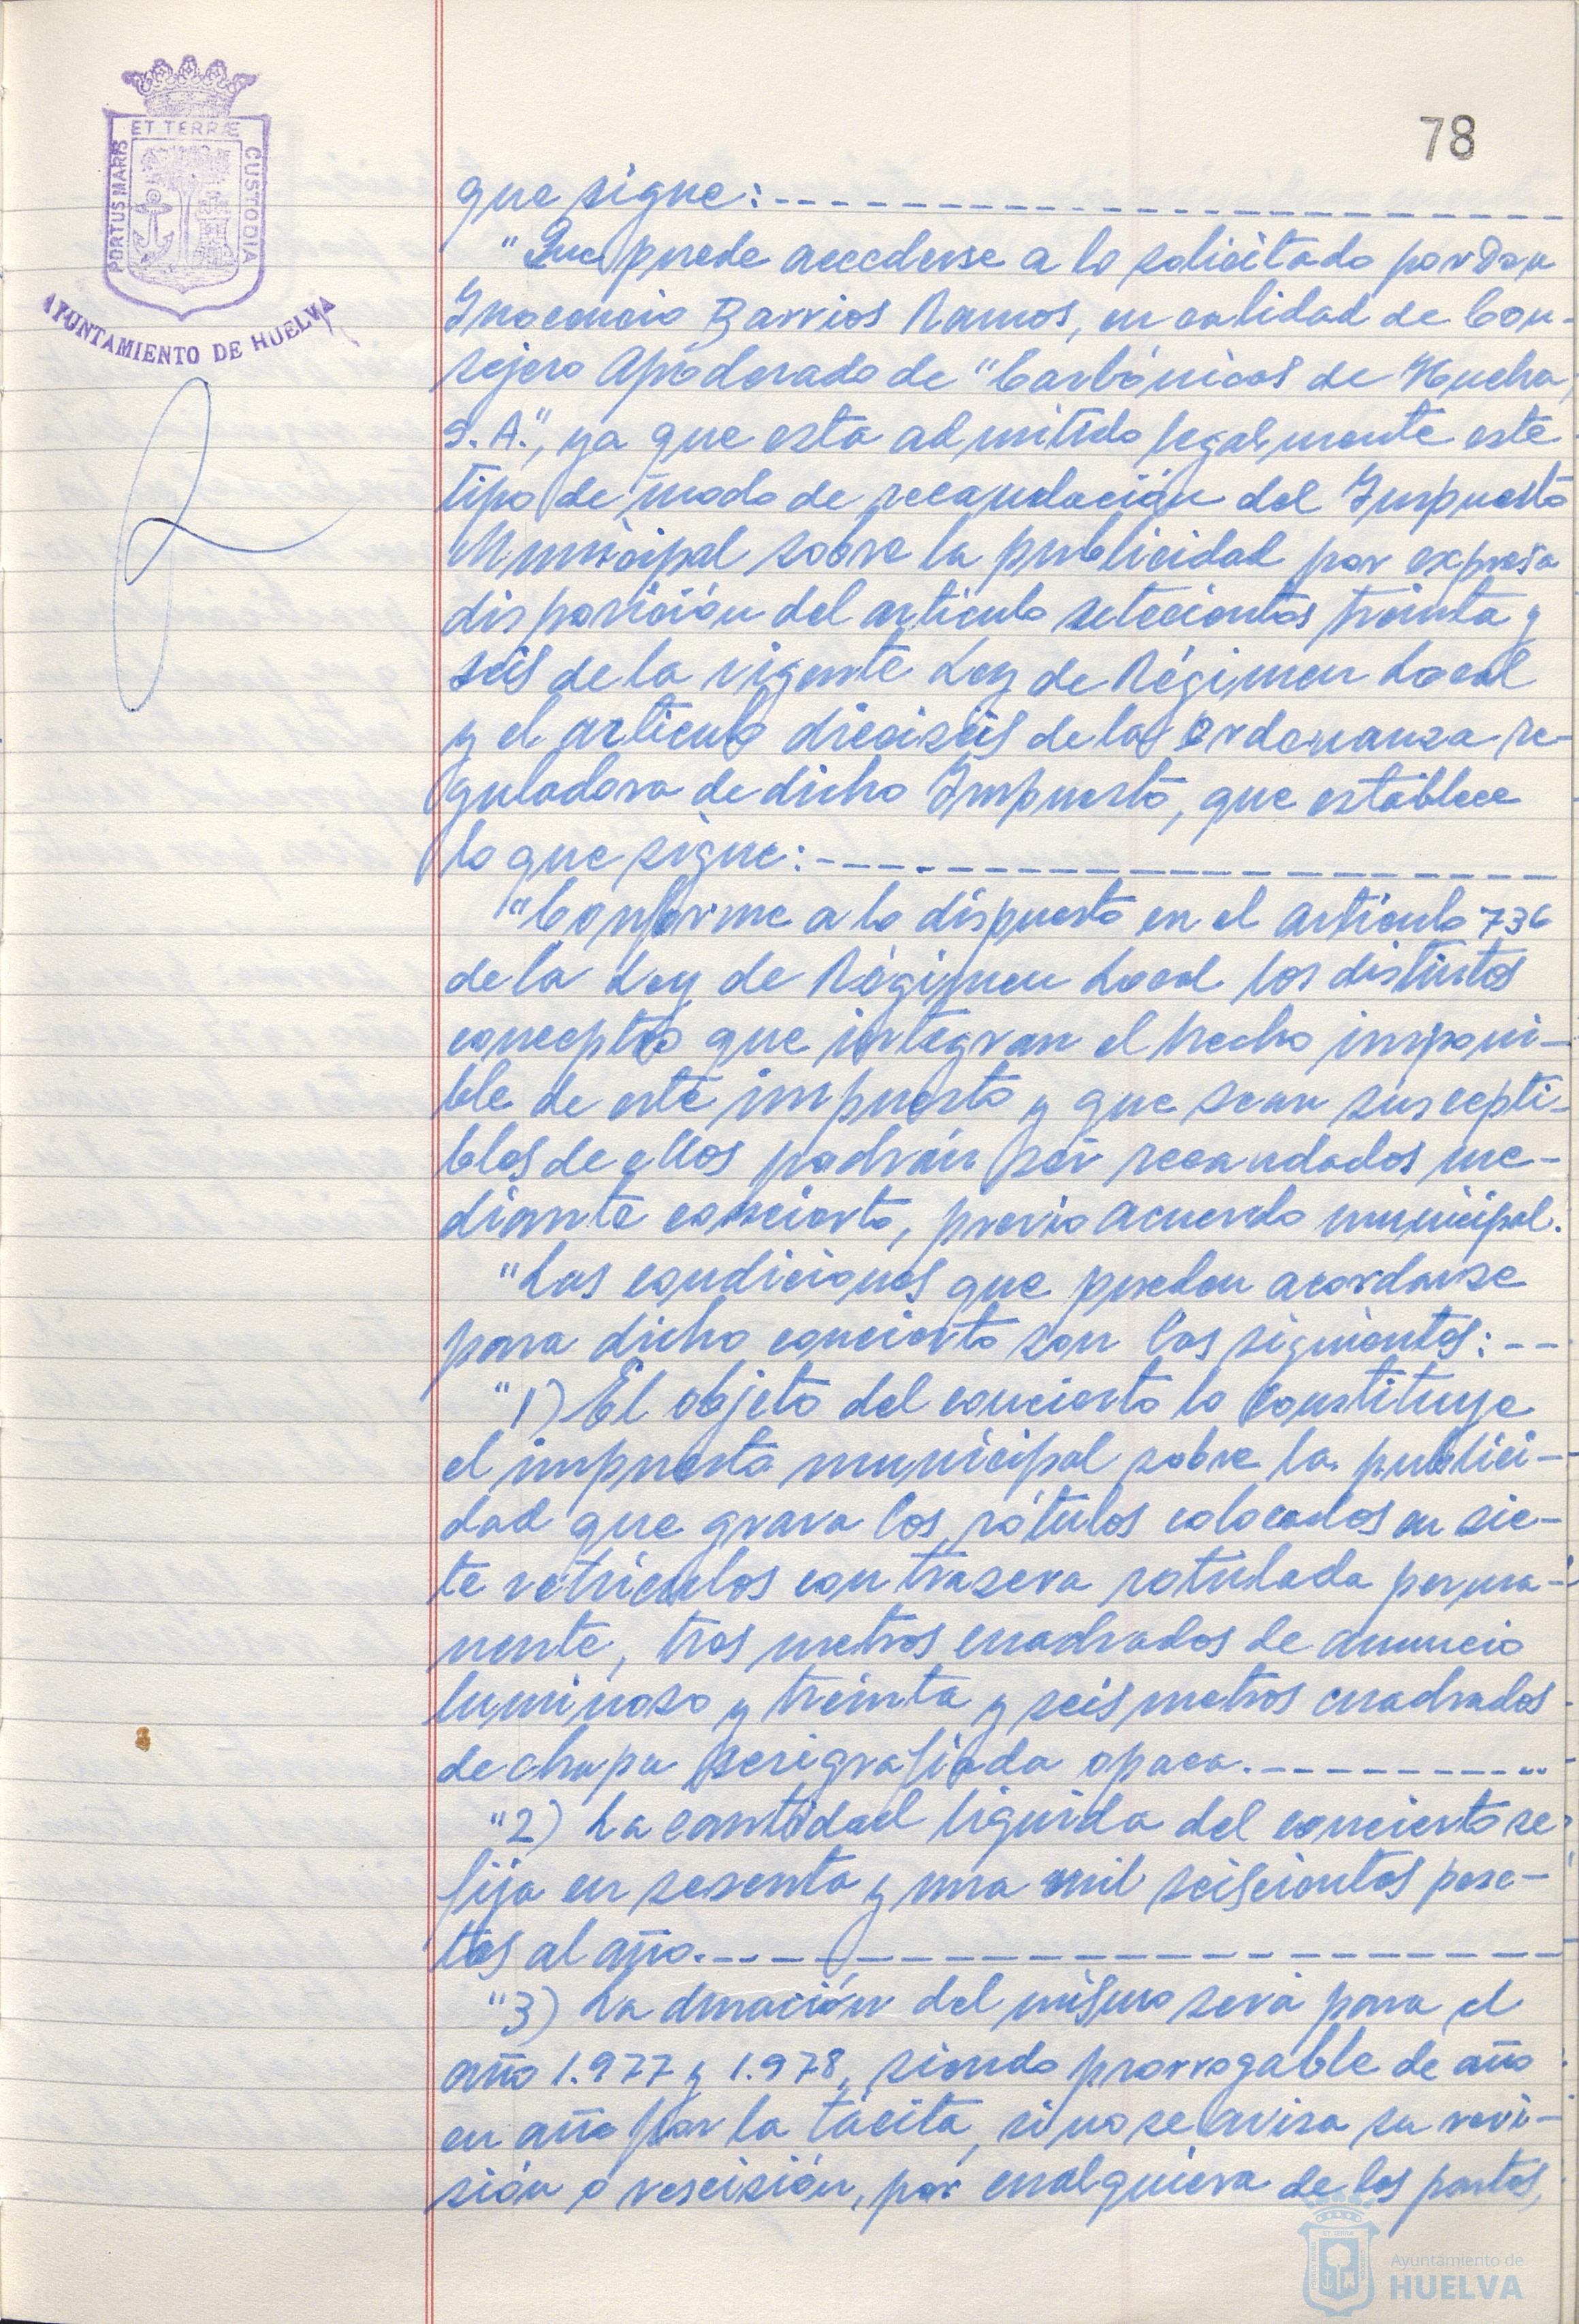 78
ET TERRÆ
PORTUS MARIS
CUSTODIA
AYUNTAMIENTO DE HUELVA
que sigue:
"Que puede accederse a lo solicitado por Don
Inocencio Barrios Ramos, en calidad de Con-
sejero Apoderado de "Carbónicas de Huelva,
S.A.", ya que esta admitido legalmente este
tipo de modo de recaudación del Impuesto
Municipal sobre la publicidad por expresa
disposición del articulo setecientos treinta y
seis de la vigente Ley de Régimen Local
y el articulo dieciseis de las Ordenanza re-
guladora de dicho Impuesto, que establece
lo que sigue:
"Conforme a lo dispuesto en el articulo 736
de la Ley de Régimen Local los distintos
conceptos que integran el hecho imponi-
ble de este impuesto y que sean suscepti-
bles de ellos podrán ser recaudados me-
diante concierto, previo acuerdo municipal.
"Las condiciones que pueden acordarse
para dicho concierto son las siguientes:--
"1) El objeto del concierto lo constituye
el impuesto municipal sobre la publici-
dad que grava los rótulos colocados en sie-
te vehiculos con trasera rotulada perma-
nente, tres metros cuadrados de anuncio
luminoso y treinta y seis metros cuadrados
de chapa serigrafiada opaca.
"2) La cantidad liquida del concierto se
fija en sesenta y una mil seiscientas pese-
tas al año.
"3) La duración del mismo será para el
año 1.977 y 1.978, siendo prorrogable de año
en año por la tácita, si no se avisa su revi-
sión o rescisión, por cualquiera de las partes,
Ayuntamiento de
HUELVA